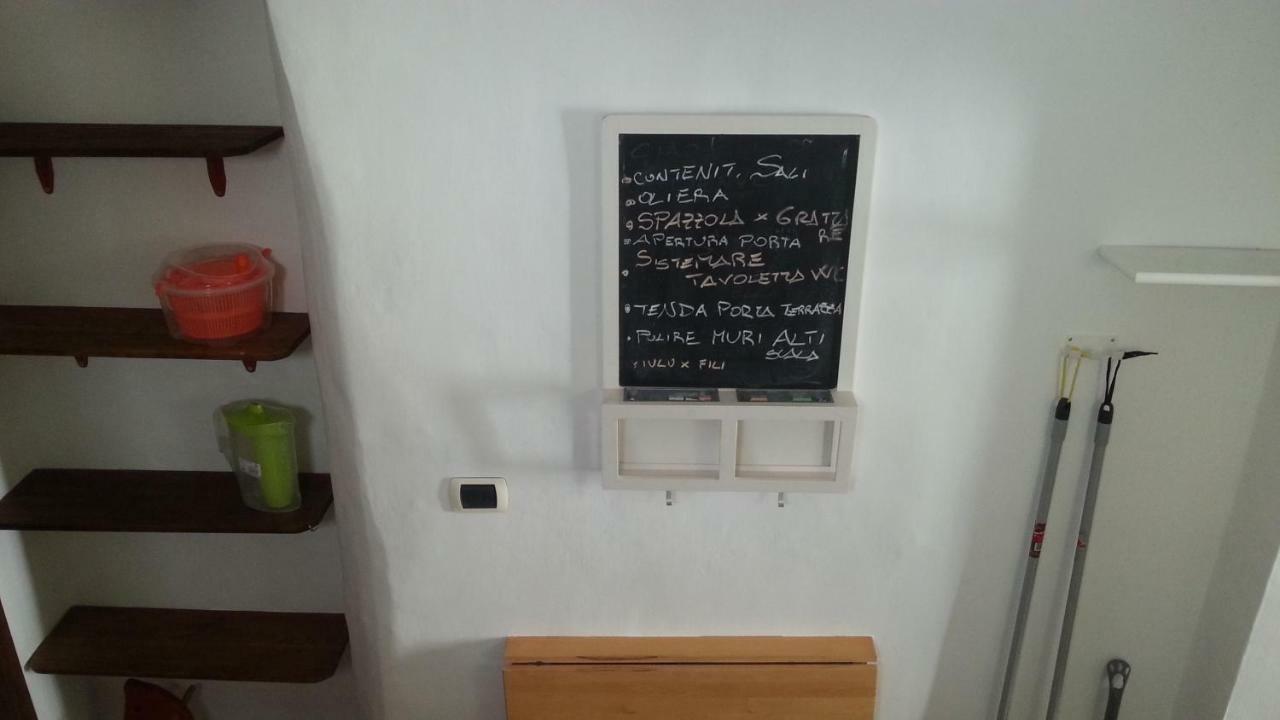 CONTENIT. SALI
OLIERA
SPAZZOLA x GRATTA
RE
APERTURA PORTA
SISTEMARE
TAVOLETTA WC
TENDA PORTA TERRAZZA
PULIRE MURI ALTI
SCALA
x FILI